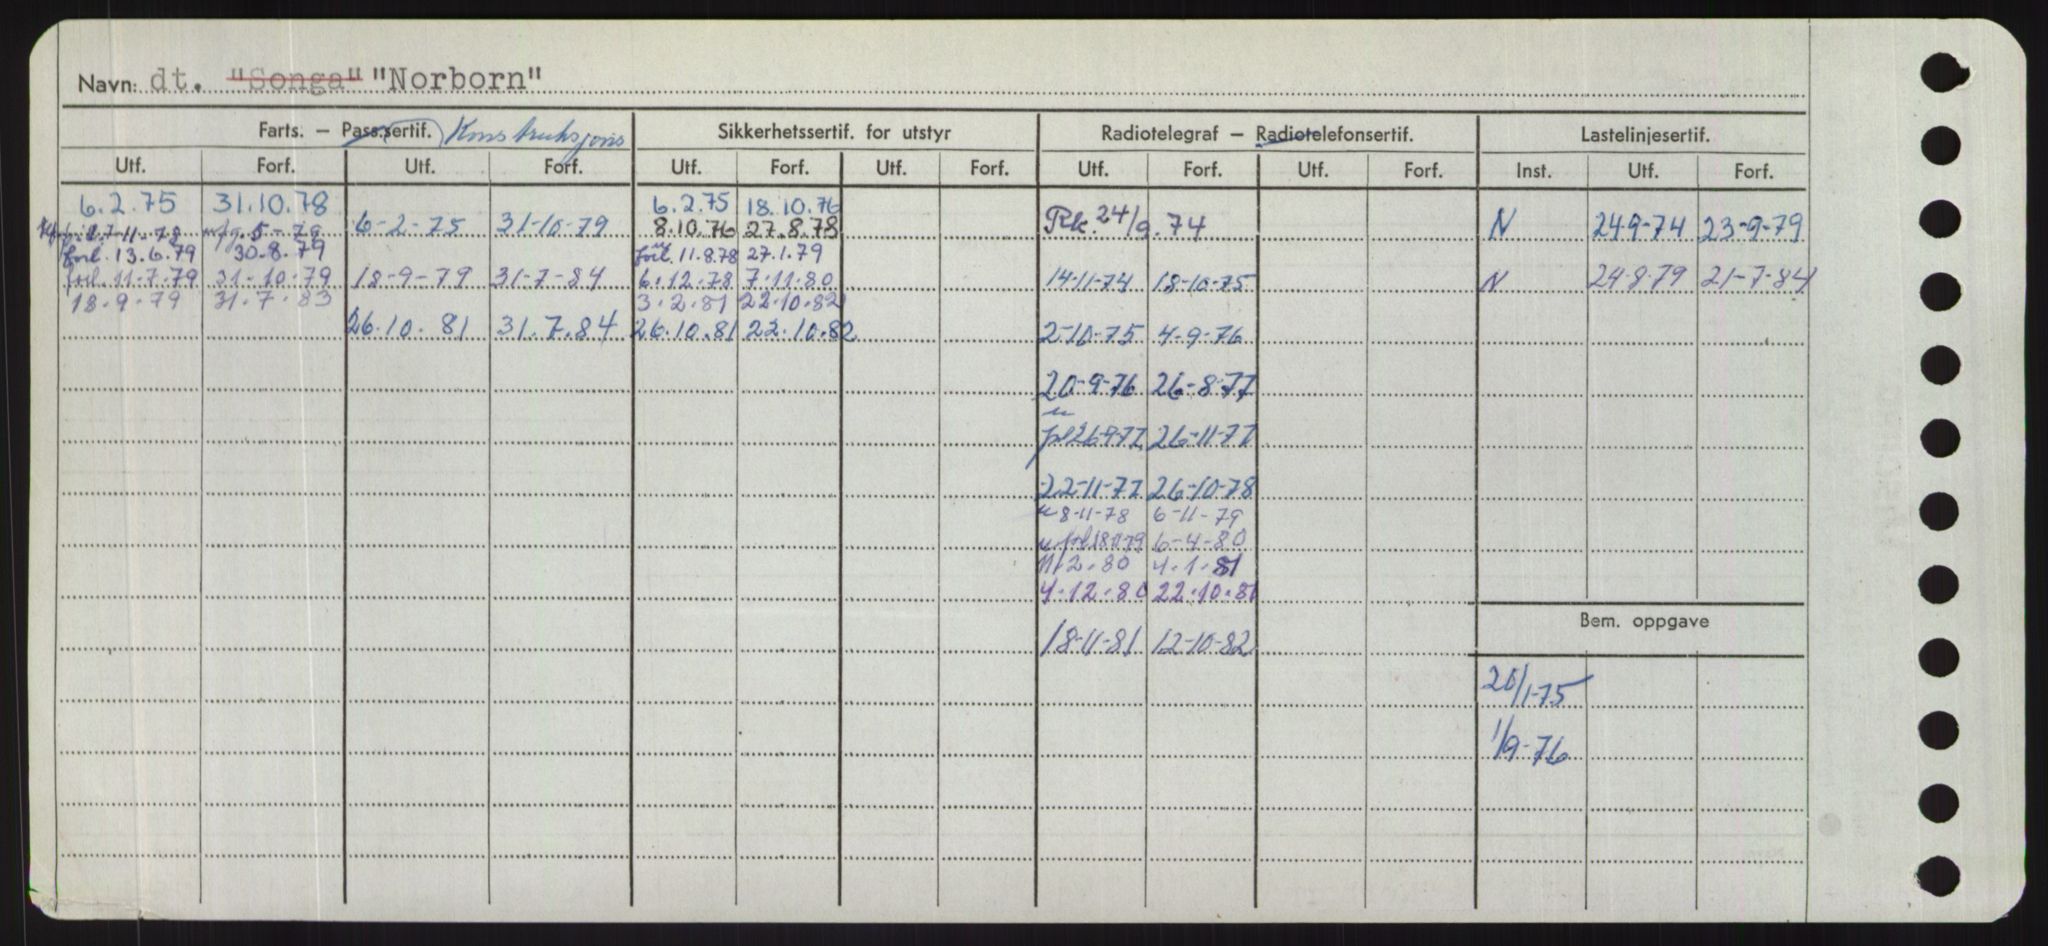 Navn: dt. "Songa" "Norborn"
Farts. — Pass.sertif. Konstruksjons Sikkerhetssertif. for utstyr Radiotelegraf — Radiotelefonsertif. Lastelinjesertif.
Utf. Forf. Utf. Forf. Utf. Forf. Utf. Forf. Utf. Forf. Utf. Forf. Inst. Utf. Forf.
6.2.75 31.10.78 6.2.75 18.10.76
7-11-78 5-79 6-2-75 31-10-79 8.10.76 27.8.78 Rk. 24/9.74 N 24-9-74 23-9-79
forl. 13.6.79 30.8.79 forl. 11.8.78 27.1.79
forl. 11.7.79 31-10.79 18-9-79 31-7-84 6.12.78 7.11.80 14-11-74 18-10-75 N 24-8-79 21-7-84
18.9.79 31.7.83 3.2.81 22.10.82
26.10.81 31.7.84 26.10.81 22.10.82 2-10-75 4-9-76
20-9-76 26-8-77
u
26-9-77 26-11-77
22-11-77 26-10-78
u 8-11-78 6-11-79
u forl 6-4-80
11.2.80 4.1.81
4.12.80 22.10.81
Bem. oppgave
18-11-81 12-10-82
20/1-75
1/9-76